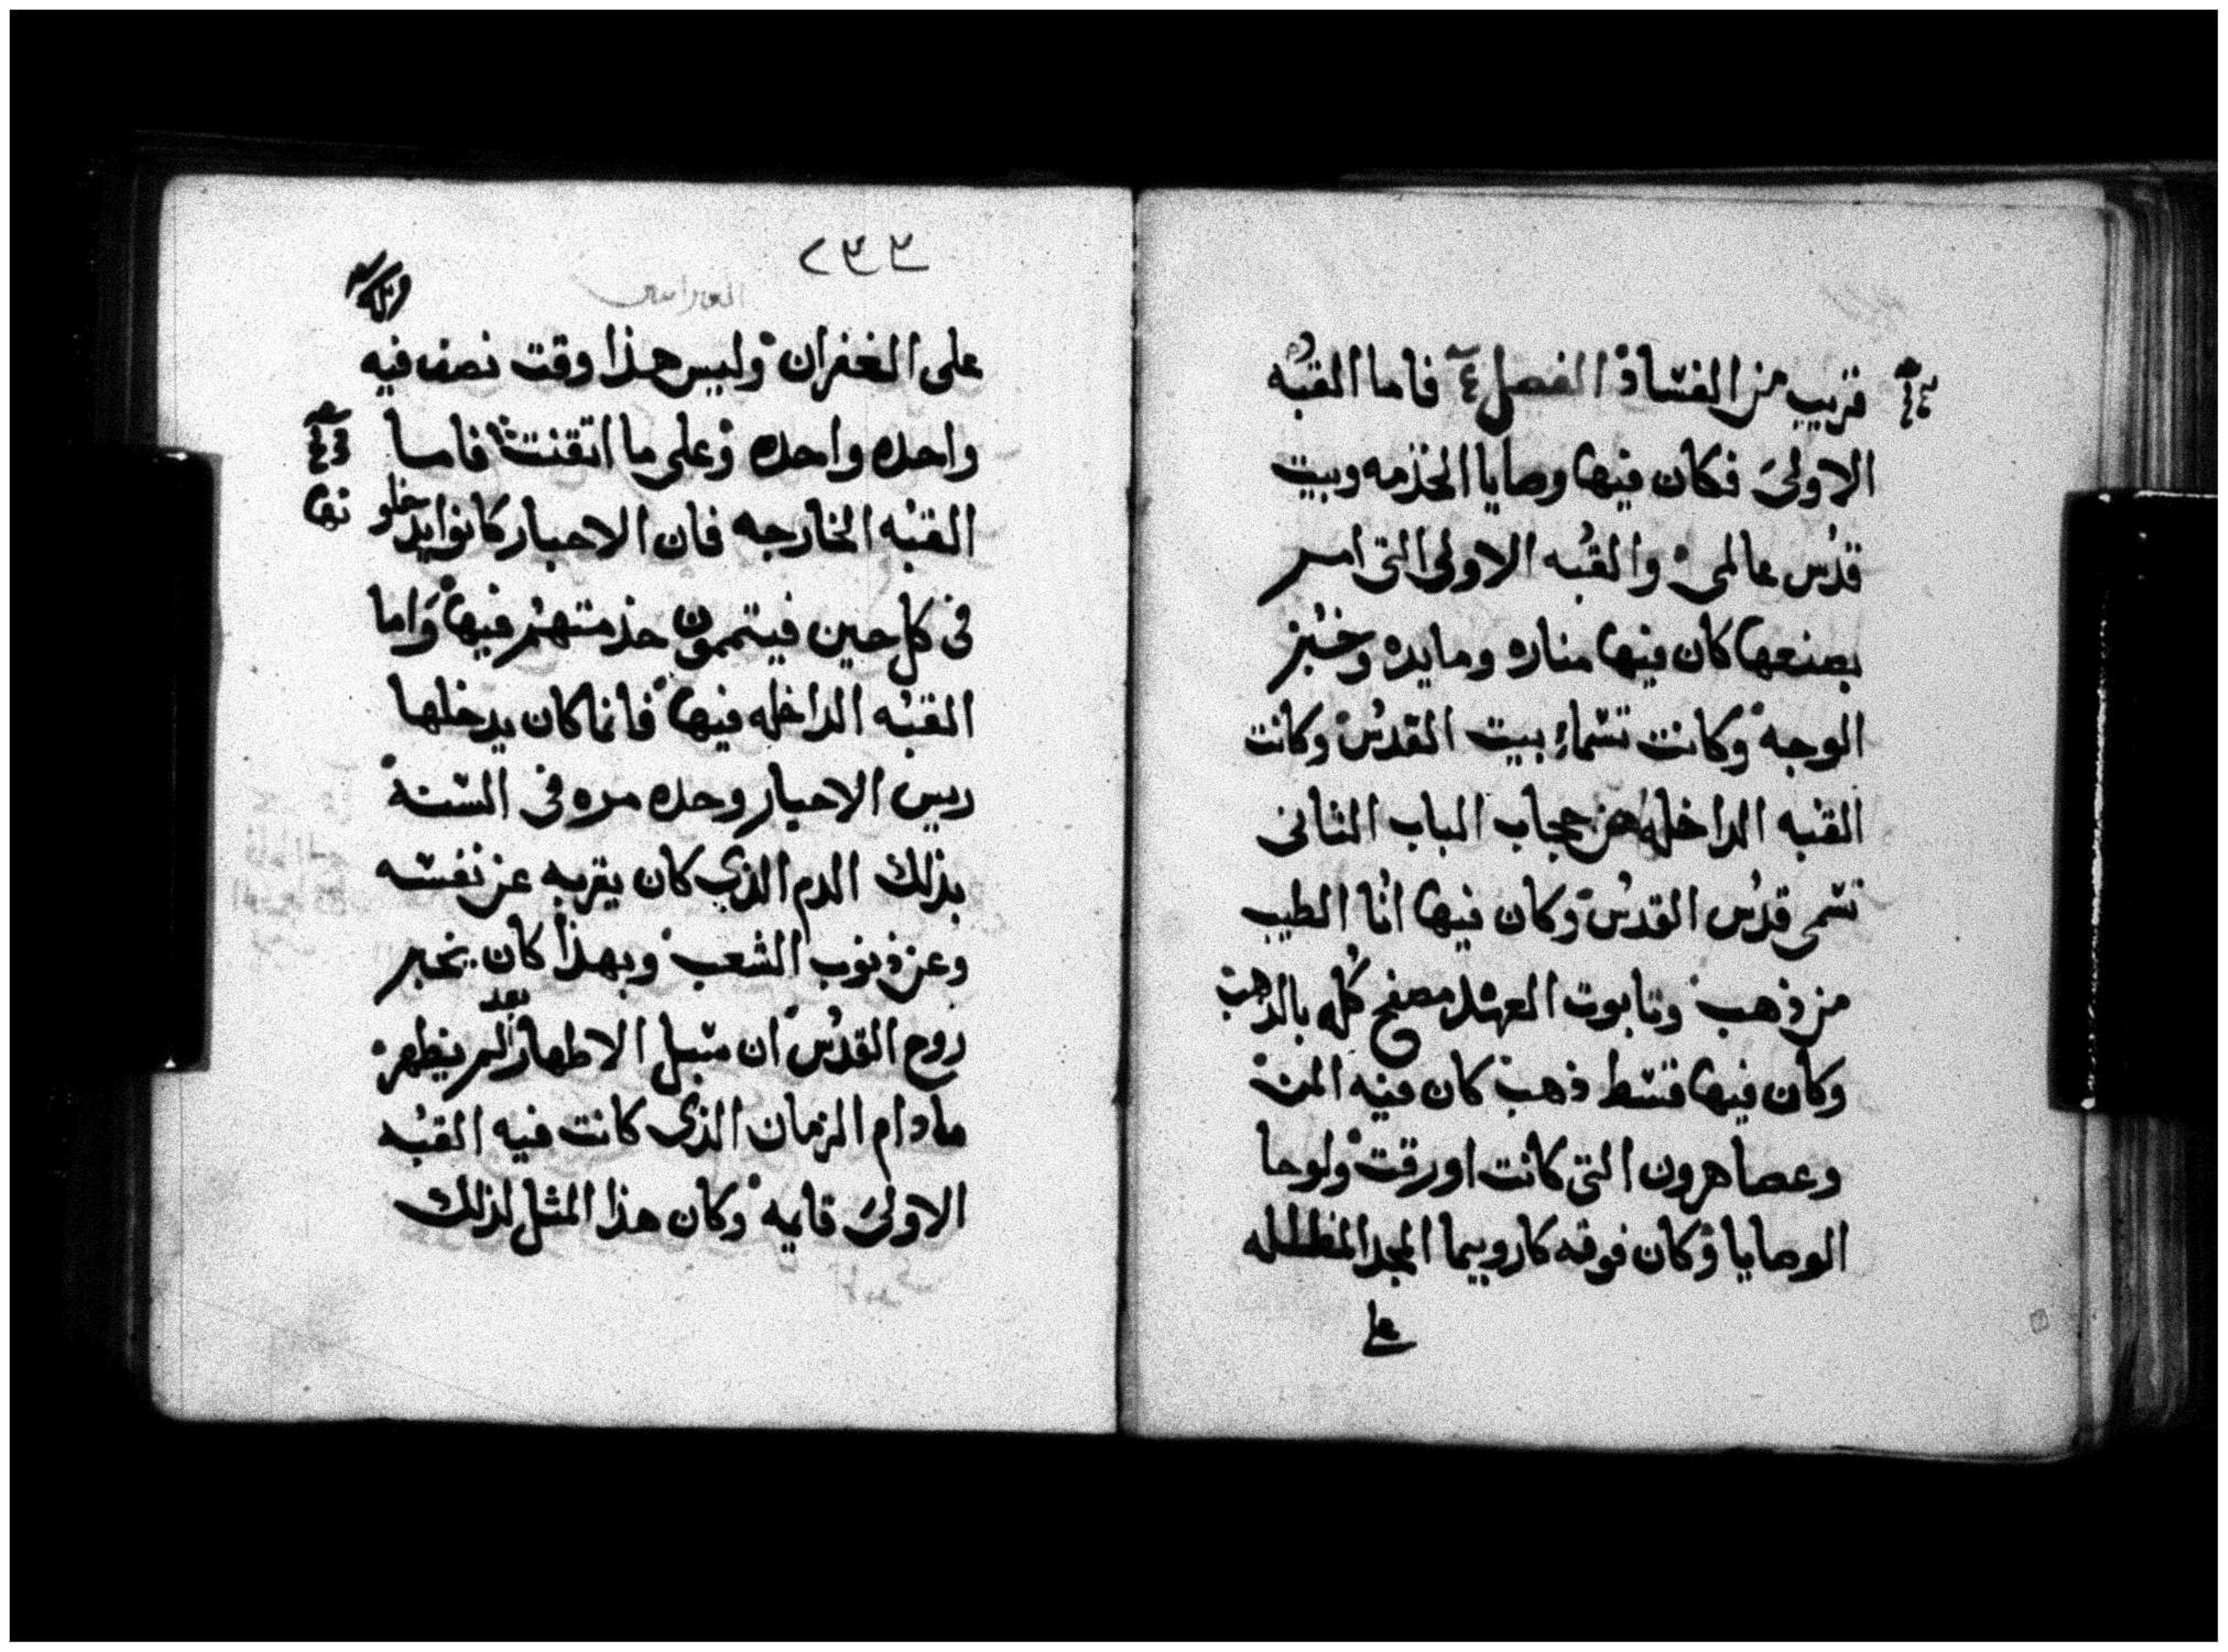 قريب من الفساد الفصل فاما القبه
الاولى فكان فيها وصايا الخدمه وبيت
قدس عالمى والقبه الاولى التى امر
بصنعها كان فيها مناره ومايده وخبز
الوجه وكانت تسماء بيت القدس وكانت
القبه الداخله من حجاب الباب الثانى
تسمى قدس القدس وكان فيها انا الطيب
من ذهب وتابوت العهد مصفح كله بالدهب
وكان فيها قسط ذهب كان فيه المن
وعصا هرون التى كانت اورقت ولوحا
الوصايا وكان فوقه كاروبيما المجد المظلله
على
٢٣٣
العبرانيين
على الغفران وليس هذا وقت نصف فيه
واحده واحده وعلى ما اتقنت فاما
القبه الخارجه فان الاحبار كانوا يدخلو نها
فى كل حين فيتممون خذمتهم فيها واما
القبه الداخله فيها فانما كان يدخلها
ريس الاحبار وحده مره فى السنة
بذلك الدم الذي كان يقربه عن نفسه
وعن ذنوب الشعب وبهذا كان يخبر
روح القدس ان سبيل الاطهار لم يظهر بعد
ما دام الزمان الذى كانت فيه القبه
الاولى قايمه وكان هذا المثل لذلك